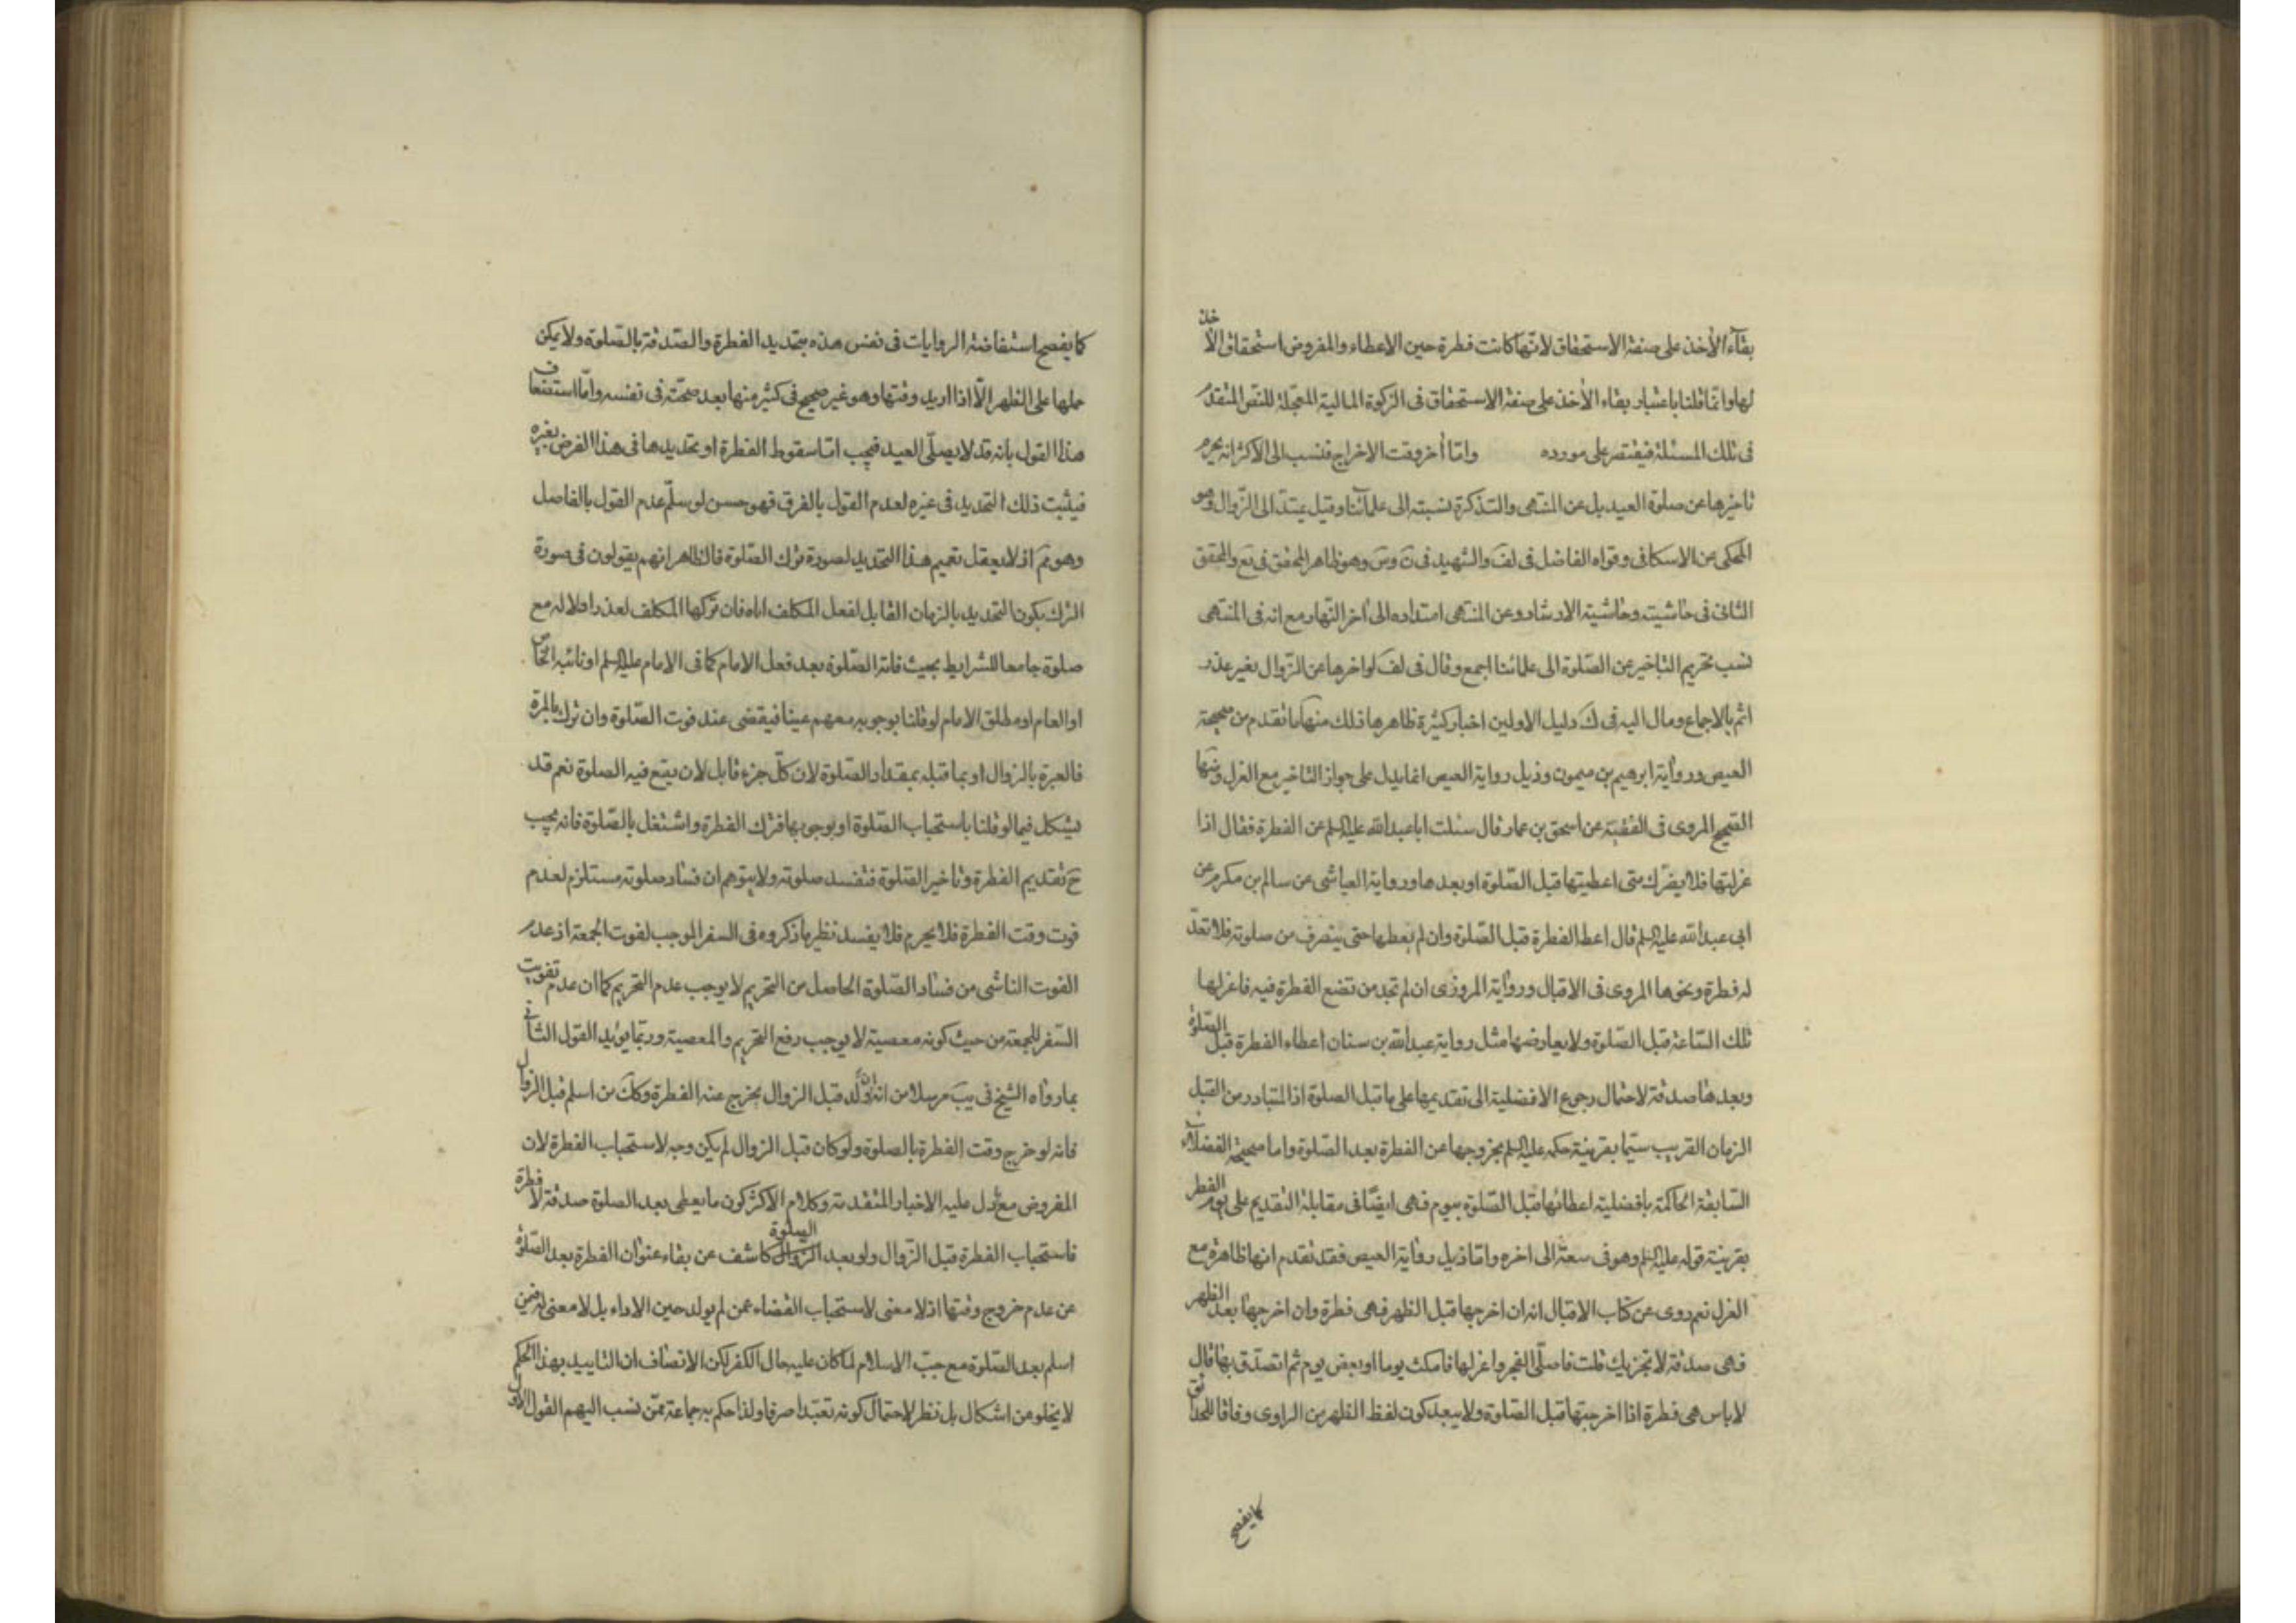 بقاء الأخذ على صفة الاستحقاق لانّها كانت فطرة حين الاعطاء والمفروض استحقاق الاخذ
لها وانّما قلنا باعتبار بقاء الأخذ على صفة الاستحقاق فى الزكوة المالية المعجلة للنصّ المتقدم
فى تلك المسئلة فيقتصر على مورده وامّا أخر وقت الاخراج فنسب الى الاكثر انه يحرم
تاخيرها عن صلوة العيد بل عن المنتهى والتذكرة نسبته الى علمآئنا وقيل يمتدّ الى الزّوال وهو
المحكى عن الاسكافى وقواه الفاضل فى لف والشهيد فى ن وس وهو ظاهر المحقق فى يع والمحقق
الثانى فى حاشيته وحاشية الارشاد وعن المنتهى امتداده الى اخر النّهار مع انه فى المنتهى
نسب تحريم التاخير عن الصّلوة الى علمائنا اجمع وقال فى لف لو اخرها عن الزّوال بغير عذر
اثم بالاجماع ومال اليه فى ك دليل الاولين اخبار كثيرة ظاهرها ذلك منها ما تقدم من صحيحة
العيص ورواية ابرهيم بن ميمون وذيل رواية العيص انما يدل على جواز التاخير مع العزل ومنها
الصّحيح المروى فى الفقيه عن اسحق بن عمار قال سئلت ابا عبد الله عليه السلم عن الفطرة فقال اذا
عزلتها فلا يضرّك متى اعطيتها قبل الصّلوة او بعدها ورواية العياشى عن سالم بن مكرم عن
ابى عبد الله عليه السلم قال اعط الفطرة قبل الصّلوة وان لم يعطها حتى ينصرف من صلوته فلا تعدّ
له فطرة ونحوها المروى فى الاقبال ورواية المروزى ان لم تجد من تضع الفطرة فيه فاعزلها
تلك السّاعة قبل الصّلوة ولا يعارضها مثل رواية عبد الله بن سنان اعطاء الفطرة قبل الصّلوة
وبعدها صدقة لاحتمال رجوع الافضلية الى تقديمها على ما قبل الصلوة اذ المتبادر من القبل
الزمان القريب سيّما بقرينة حكمه عليه السلم بخروجها عن الفطرة بعد الصّلوة واما صحيحة الفضلاء
السّابقة الحاكمة بافضلية اعطائها قبل الصّلوة بيوم فهى ايضًا فى مقابلة التقديم على يوم الفطر
بقرينة قوله عليه السلم وهو فى سعة الى اخره وامّا ذيل رواية العيص فقد تقدم انها ظاهرة مع
العزل نعم روى عن كتاب الاقبال انه ان اخرجها قبل الظهر فهى فطرة وان اخرجها بعد الظهر
فهى صدقة لا تجزيك قلت فاصلّى الفجر واعزلها فامكث يوما او بعض يوم ثم اتصدّق بها قال
لا باس هى فطرة اذا اخرجتها قبل الصّلوة ولا يبعد كون لفظ الظهر من الراوى وفاقا للحدائق
كما يفصح
كما يفصح استفاضة الروايات فى نفس هذه بتحديد الفطرة والصّدقة بالصّلوة ولا يمكن
حملها على الظهر الّا اذا اريد وقتها وهو غير صحيح فى كثير منها بعد صحّته فى نفسه وامّا استضعاف
هذا القول بانه قد لا يصلّى العيد فيجب امّا سقوط الفطرة او تحديدها فى هذا الفرض بغيره
فيثبت ذلك التحديد فى غيره لعدم القول بالفرق فهو حسن لو سلّم عدم القول بالفاصل
وهو ثمّ اذ لا يعقل تعميم هذا التحديد لصورة ترك الصّلوة فالظاهر انهم يقولون فى صورة
الترك بكون التحديد بالزمان القابل لفعل المكلف اياه فان تركها المكلف لعذر او لا له مع
صلوة جامعا للشرايط بحيث فاته الصّلوة بعد فعل الامام كما فى الامام عليه السلم او نائبه الخاص
او العام او مطلق الامام لو قلنا بوجوبه معهم عينا فيقضى عند فوت الصّلوة وان ترك بالمرة
فالعبرة بالزوال او بما قبله بمقدار الصّلوة لان كلّ جزء قابل لان يقع فيه الصلوة نعم قد
يشكل فيما لو قلنا باستحباب الصّلوة او بوجوبها فترك الفطرة واشتغل بالصّلوة فانه يجب
ح تقديم الفطرة وتاخير الصّلوة فتفسد صلوته ولا يتوهم ان فساد صلوته مستلزم لعدم
فوت وقت الفطرة فلا يحرم فلا يفسد نظير ما ذكروه فى السفر الموجب لفوت الجمعة اذ عدم
الفوت الناشى من فساد الصّلوة الحاصل من التحريم لا يوجب عدم التحريم كما ان عدم تفويت
السّفر للجمعة من حيث كونه معصية لا يوجب رفع التحريم والمعصية وربّما يؤيد القول الثانى
بما رواه الشيخ فى يب مرسلا من انه ان ولد قبل الزوال يخرج عنه الفطرة وكك من اسلم قبل الزوال
فانه لو خرج وقت الفطرة بالصلوة ولو كان قبل الزوال لم يكن وجه لاستحباب الفطرة لان
المفروض مع دل عليه الاخبار المتقدمة وكلام الاكثر كون ما يعطى بعد الصلوة صدقة لا فطرة
فاستحباب الفطرة قبل الزّوال ولو بعد الزوال الصلوة كاشف عن بقاء عنوان الفطرة بعد الصّلوة
عن عدم خروج وقتها اذ لا معنى لاستحباب القضاء عمن لم يولد حين الاداء بل لا معنى له فيمن
اسلم بعد الصّلوة مع جبّ الاسلام لما كان عليه حال الكفر لكن الانصاف ان التاييد بهذا الحكم
لا يخلو من اشكال بل نظر لاحتمال كونه تعبّدا صرفا ولذا حكم به جماعة ممّن نسب اليهم القول الاول